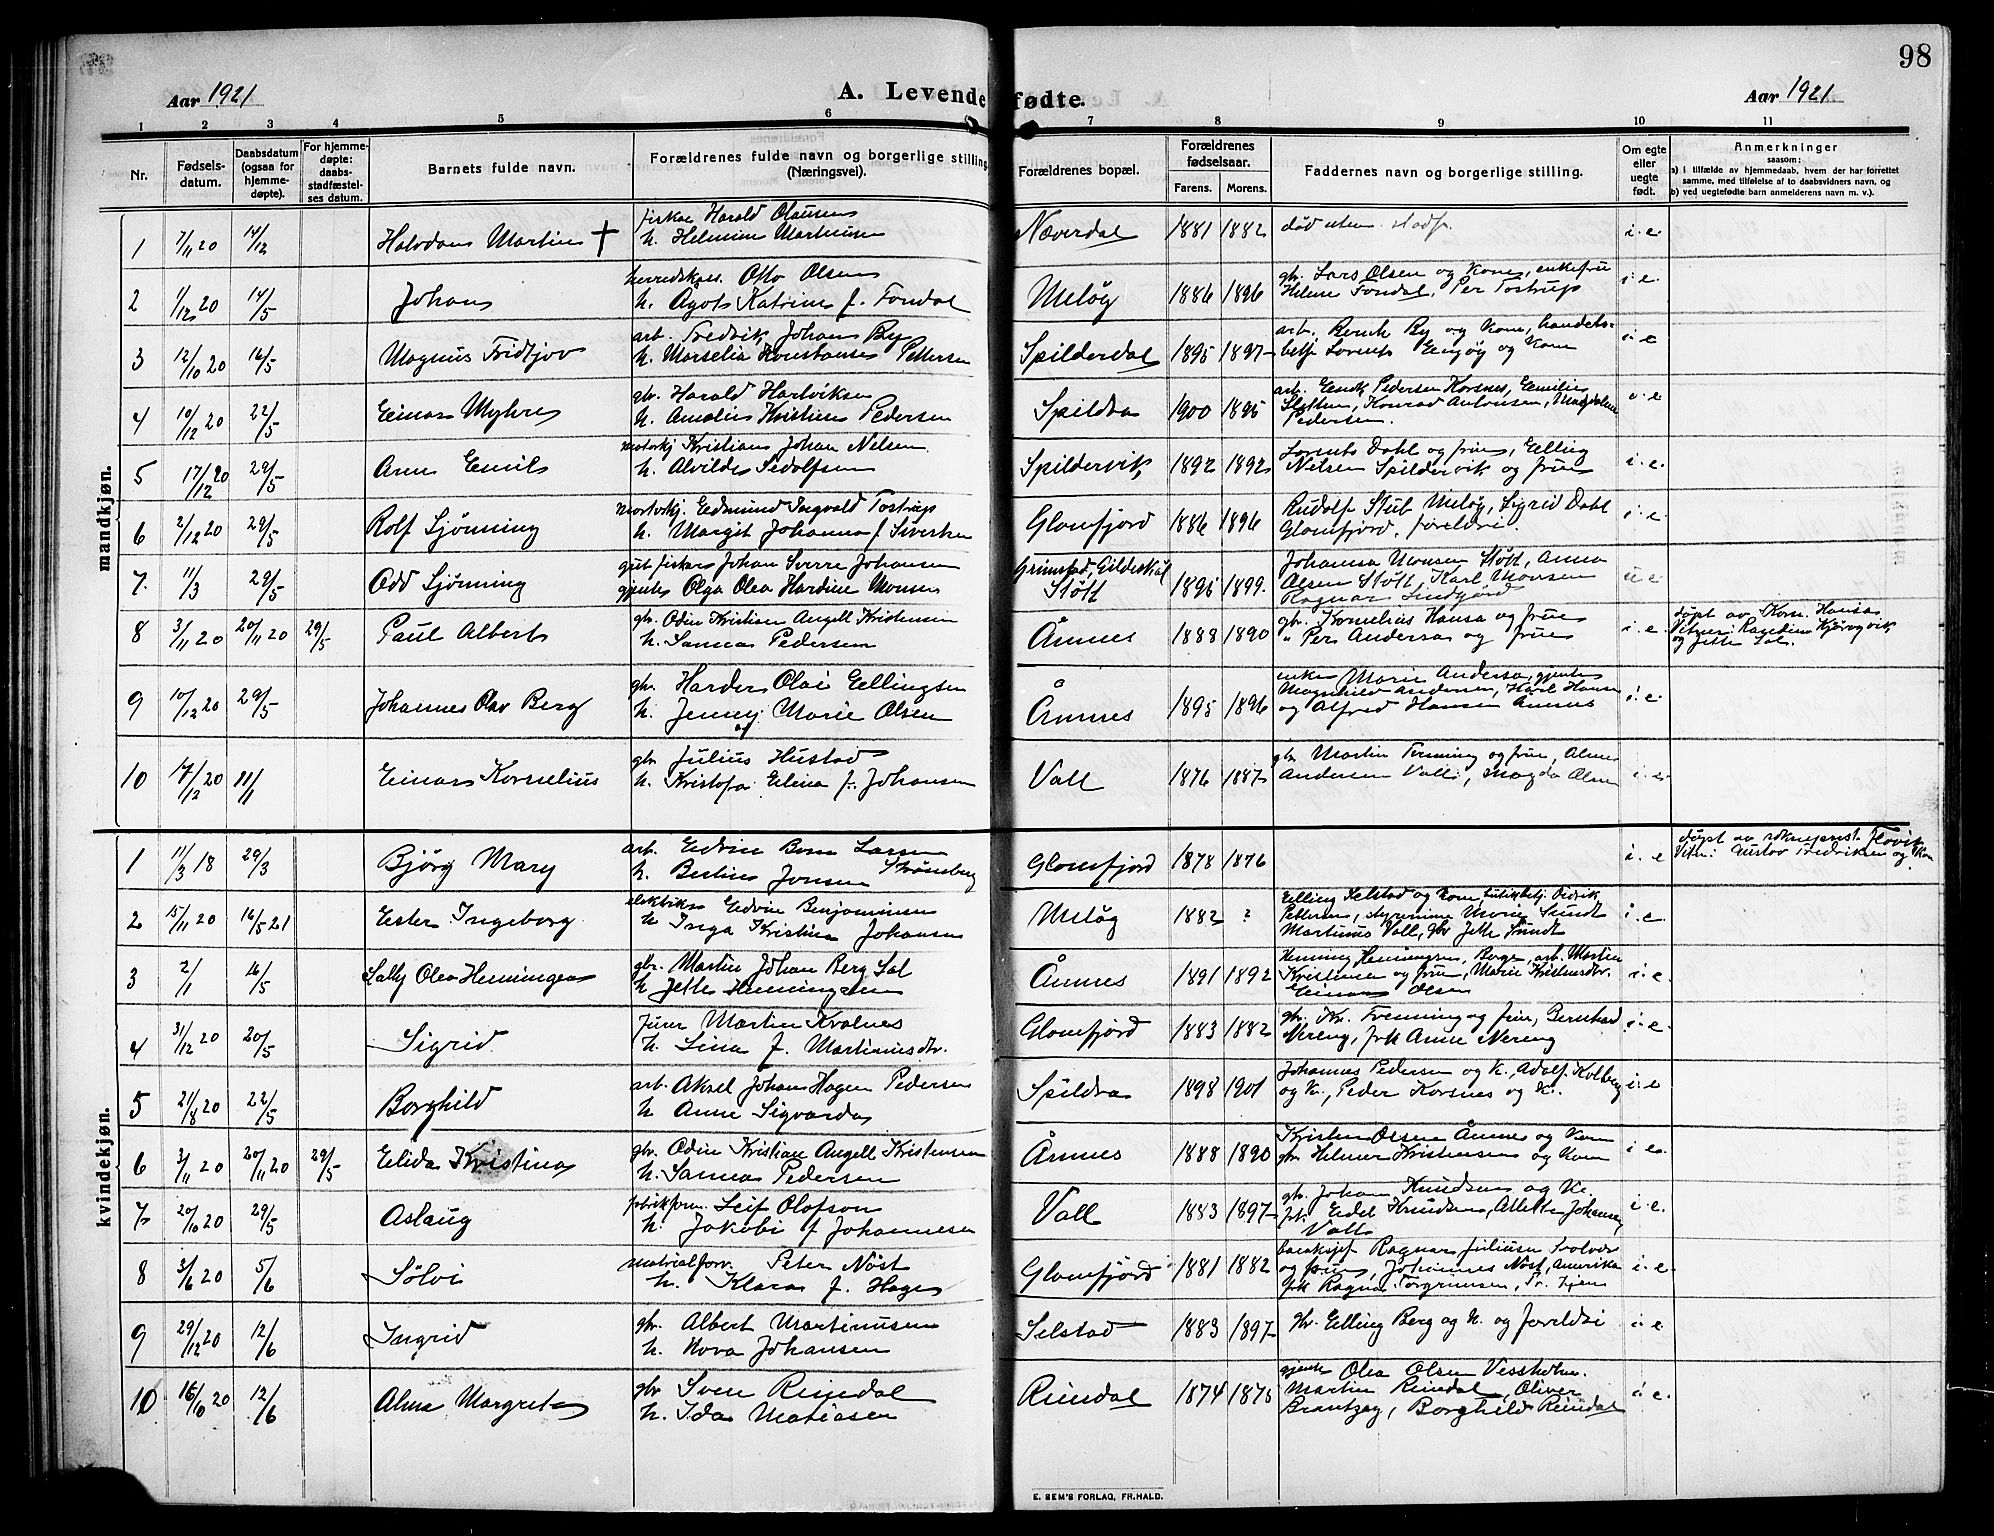 98
Aar 1921 A. Levende fødte. Aar 1921
1 2 3 4 5 6 7 8 9 10 11
Nr. Fødsels-datum. Daabsdatum (ogsaa for hjemme-døpte). For hjemme-døpte: daabs-stadfæstel-ses datum. Barnets fulde navn. Forældrenes fulde navn og borgerlige stilling (Næringsvei). Forældrenes bopæl. Forældrenes fødselsaar. Farens. Morens. Faddernes navn og borgerlige stilling. Om egte eller uegte født. Anmerkninger saasom: a) i tilfælde av hjemmedaab, hvem der har forrettet samme, med tilføielse af to daabsvidners navn, og b) ved uegtefødte barn anmelderens navn m. v.).
mandkjøn.
1 7/11 20 14/12 Halvdan Martin † fisker Harald Olausen
h. Helmine Martinsen Næverdal 1881 1882 død uten stadf. i. e.
2 1/12 20 14/5 Johan herredskas. Otto Olsen
h. Agot Katrine f. Fondal Meløy 1886 1896 gbr. Lars Olsen og Kone, enkefru
Helene Fondal, Per Tostrup i. e.
3 12/10 20 16/5 Magnus Fridtjov arb. Fredrik Johan By
h. Marselie Konstanse Pettersen Spilderdal 1895 1897 arb. Bernh By og Kone, handels-
betj. Lorents og Kone i. e.
4 10/12 20 22/5 Einar Myhre gbr. Harald Hartviksen
h. Amalie Kristine Pedersen Spildra 1900 1895 arb. Pedersen Korsnes, Emilie
Konrad Antonsen, Magdalene
Pedersen.
5 17/12 20 29/5 Arne Emil Kristian Johan Nelsen
h. Alvilde Sedolfsen Spildervik 1892 1892 Lorents Dahl og frue, Elling
Nelsen Spildervik og frue i. e.
6 2/12 20 29/5 Rolf Sjønning Edmund Ingvald Tostrup
h. Margit Johanna f. Sivertsen Glomfjord 1886 1896 Rudolf Stub Meløy, Sigrid Dahl
Glomfjord, foreldri. i. e.
7. 11/3 29/5 Odd Sjønning gut fisker Johan Sverre Johansen
gjente Olga Olea Hardine Monsen Grimstad, Gildeskål
Støtt 1895 1899 Johanna Monsen Støtt, Anna
Olsen Støtt, Karl Monsen
Ragnar u e
8 3/11 20 20/11 20 29/5 Paul Albert gbr. Odin Kristian Angell Kristensen
h. Sanna Pedersen Åmnes 1888 1890 gbr. Kornelius Hansa og frue
" Per Andersa og frue i. e. døpt av Korn. Hansa
og Jette Sal.
9 10/12 20 29/5 Johannes Olav Berg gbr. Harder Olai Ellingsen
h. Jenny Marie Olsen Åmnes 1895 1896 enke Marie Andersa, gjente
Magnhild Andersen, Harl Hansen
og Alfred Hansen Åmnes i. e.
10 17/12 20 11/1 Einar Kornelius gbr. Julius Hustad
h. Kristofa Elina f. Johansen Vall 1876 1887 gbr. Martin Fenning og frue, Alma
Andersen Vall, Magda Olsen i. e.
kvindekjøn.
1 11/3 18 29/3 Bjørg Mary arb. Edvin Larsen
h. Berline Jonsen Strømsberg Glomfjord 1878 1876 i. e. døpt av Flovik
Vitn: Gustav Fredriksen og Kone
2 15/11 20 16/5 21 Ester Ingeborg Edvin Benjaminsen
h. Inga Kristine Johansen Meløy 1882 ? Elling Selstad og kone, butikbetj. Fredrik
Pettersen, Sundt
Martinus Vall, gbr Jette Sundt i. e.
3 2/1 16/5 Sally Olea Henningea gbr. Martin Johan Berg Sal
h. Jette Henningsen Åmnes 1891 1892 Henning Henningsen, Berge, arb. Martin
Kristensen og frue, Marie Kristensdtr.
Einar Olsen i. e.
4 31/12 20 20/5 Sigrid Martin Kvalnes
h. Lina f. Martinusdtr. Glomfjord 1883 1882 gbr. Kr. Fenning og frue, Bernhard
Nereng, frk Anne Nereng i. e.
5 21/8 20 22/5 Borghild arb. Aksel Johan Hagen Pedersen
h. Anne Sigvarda Spildra 1898 1901 Johannes Pedersen og K., Adolf Kolberg
og K., Peder Korsnes og K. i. e
6 3/11 20 20/11 20 29/5 Elida Kristina gbr. Odin Kristian Angell Kristensen
h. Sanna Pedersen Åmnes 1888 1890 Kristen Olsen Åmnes og Kone
gbr Helmer Kristensen og Kone i e.
7 20/10 20 29/5 Aslaug Leif Olofson
h. Jakobi f Johannesen Vall 1883 1897 gbr. Johan Knudsen og K.
frk. Eidel Knudsen, Alette Johansen,
Vall i. e.
8 3/6 20 5/6 Sølvi materialforv. Peter Nøst
h. Klara f. Hage Glomfjord 1881 1882 Ragnar Juliussen
og frue, Johannes Nøst, Amerika
frk Ragna Torgrimsen, i. e.
9 29/12 20 12/6 Ingrid gbr. Albert Martinusen
h. Hova Johansen Selstad 1883 1897 gbr. Elling Berg og K. og foreldri i. e
10 16/10 20 12/6 Alma Margreta gbr Sven Reindal
h. Ida Matiasen Reindal 1874 1875 gjente Olea Olsen
Martin Reindal, Oliver
Brantzeg, Borghild Reindal i. e.
E. SEM'S FORLAG, FR.HALD.